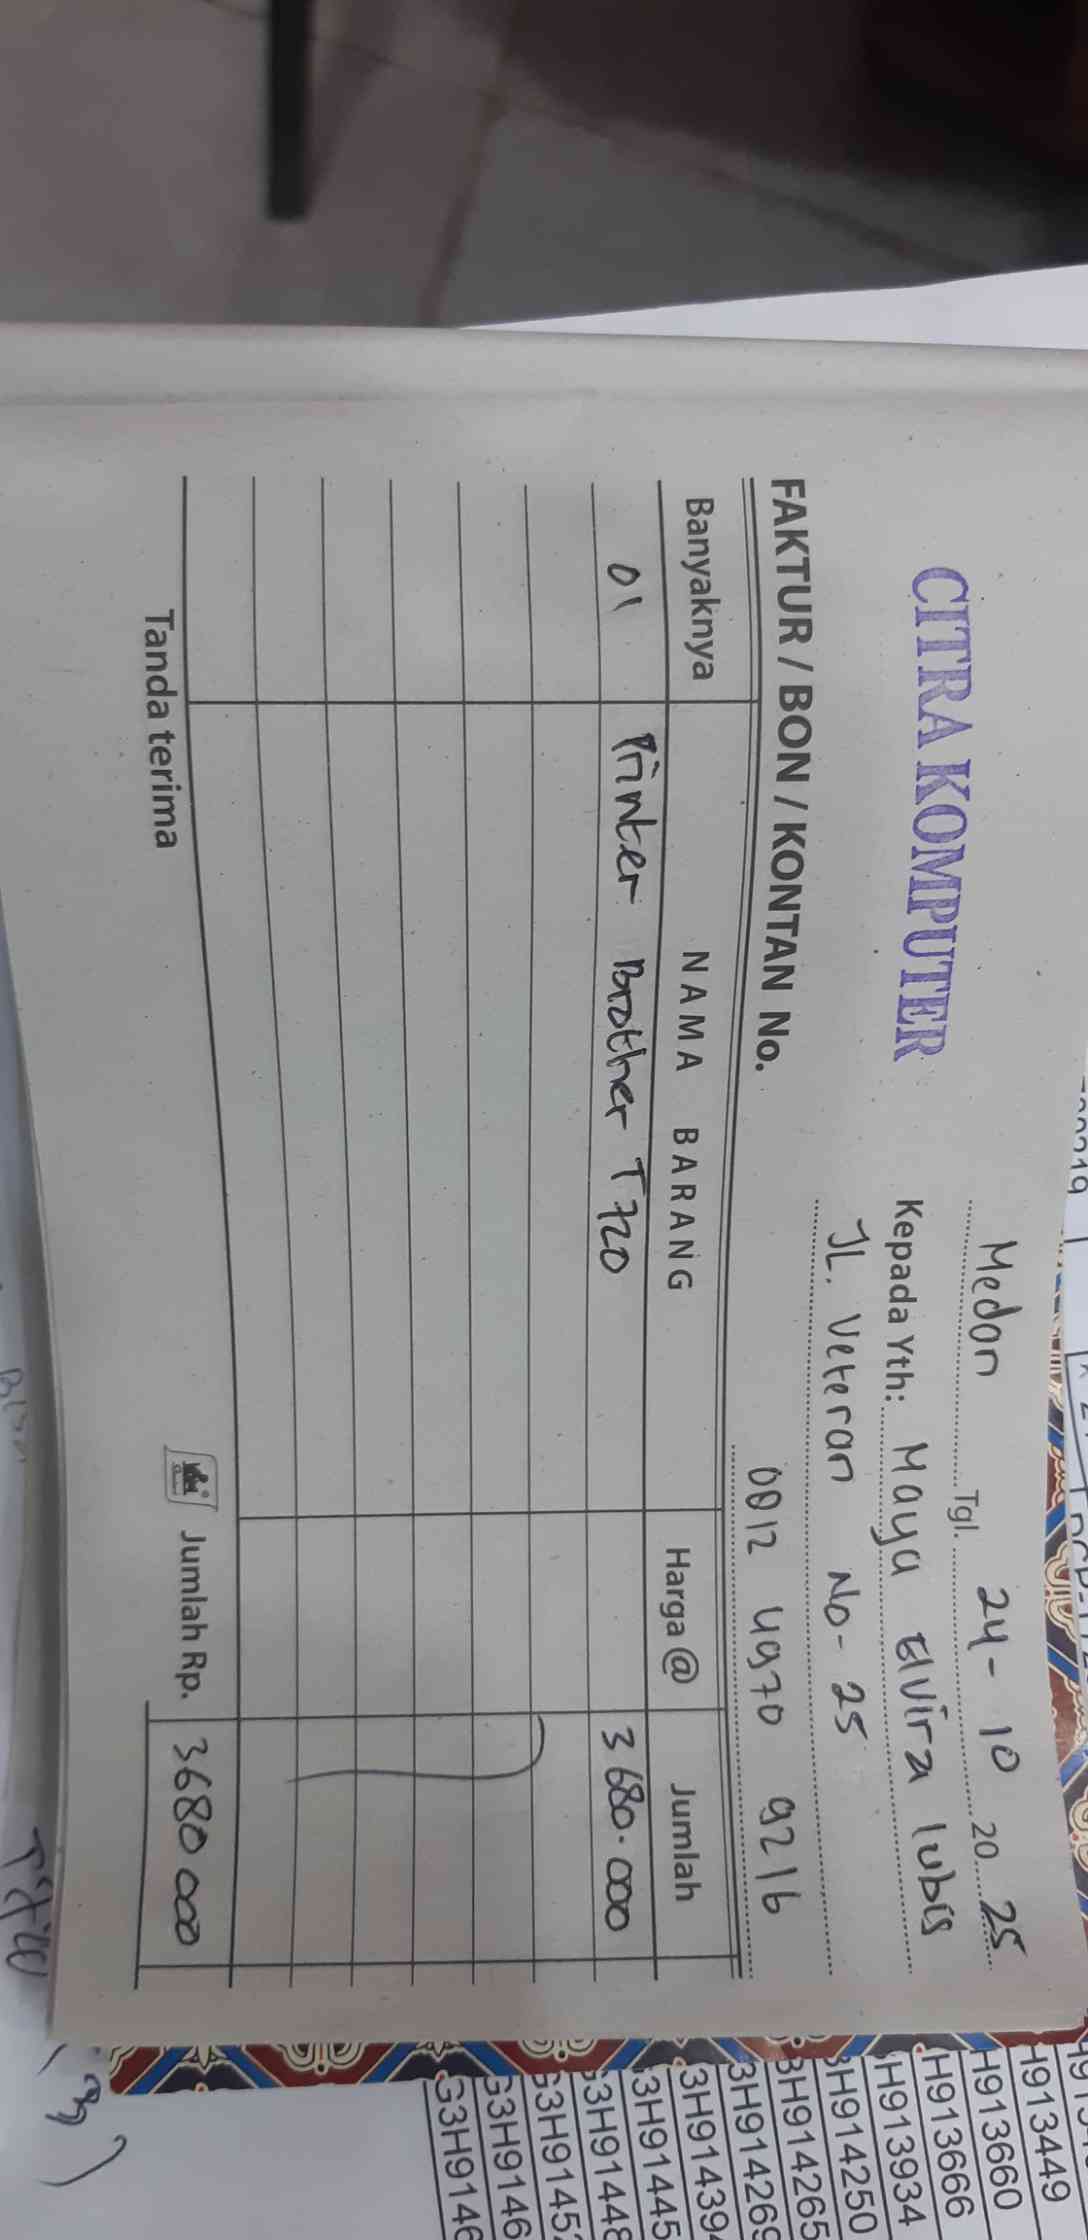 Medan Tgl. 24 - 10 20 25
CITRA KOMPUTER
Kepada Yth: Maya Elvira lubis
JL. Veteran No - 25
FAKTUR / BON / KONTAN No.
0812 4970 9216
Banyaknya NAMA BARANG Harga @ Jumlah
01 Printer Brother T720 3 680.000
Tanda terima Jumlah Rp. 3680 000
H913449
H913660
H913666
H913934
3H914250
3H914265
3H914269
3H91439
3H91445
3H91448
G3H9145
G3H9146
G3H9146